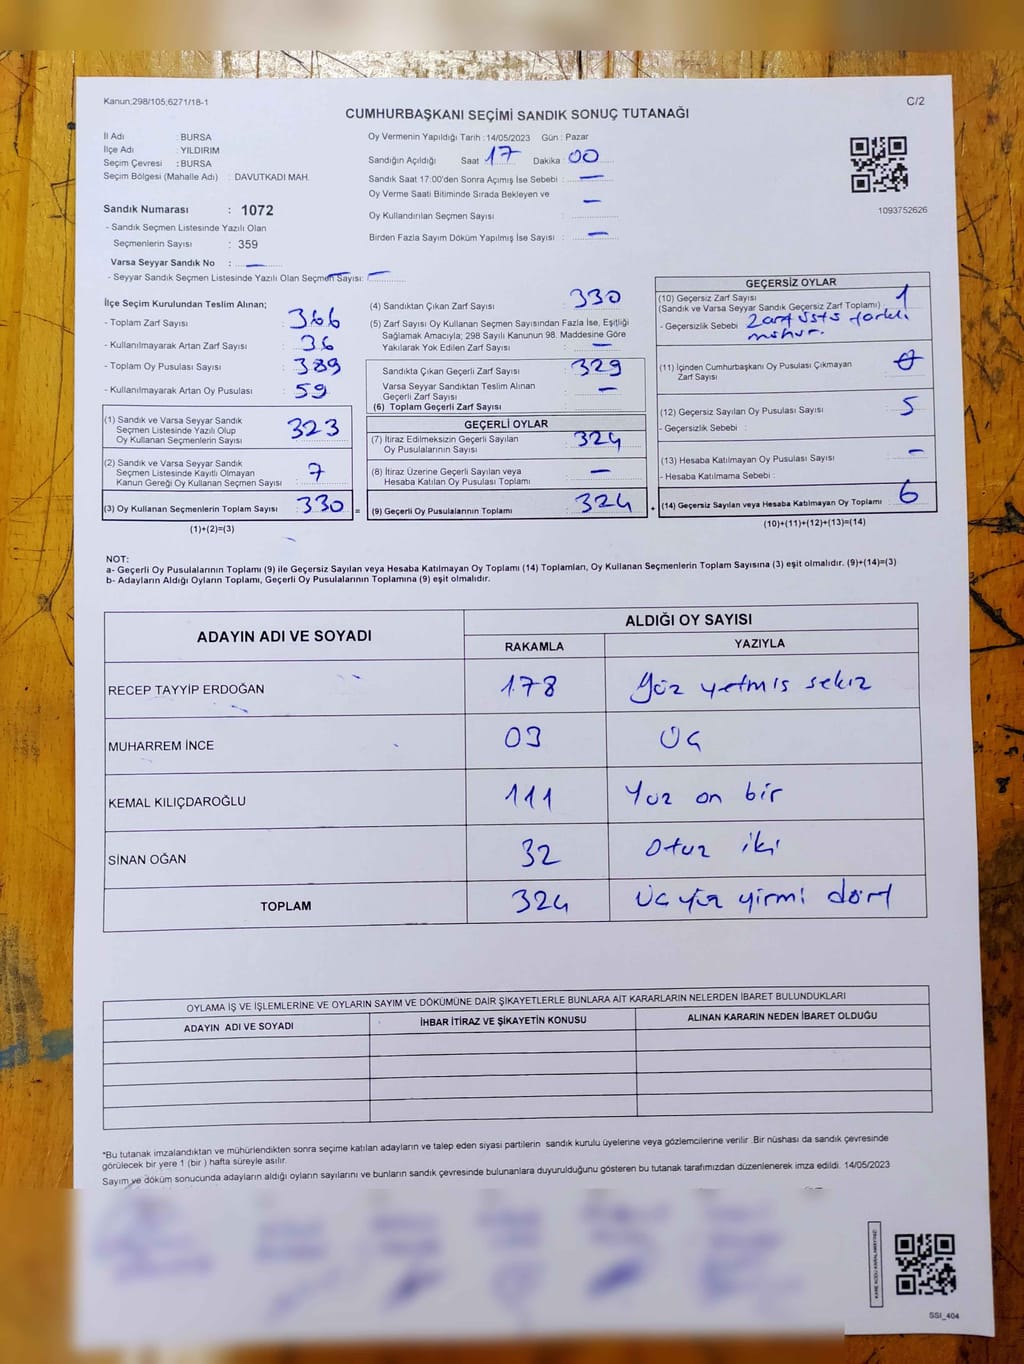 Kanun;298/105;6271/18-1
C/2
CUMHURBAŞKANI SEÇİMİ SANDIK SONUÇ TUTANAĞI
İl Adı : BURSA
İlçe Adı : YILDIRIM
Seçim Çevresi : BURSA
Seçim Bölgesi (Mahalle Adı) : DAVUTKADI MAH.
Sandık Numarası : 1072
- Sandık Seçmen Listesinde Yazılı Olan
Seçmenlerin Sayısı : 359
Varsa Seyyar Sandık No : —
- Seyyar Sandık Seçmen Listesinde Yazılı Olan Seçmen Sayısı: —
Oy Vermenin Yapıldığı Tarih : 14/05/2023 Gün : Pazar
Sandığın Açıldığı Saat 17 Dakika : 00
Sandık Saat 17:00'den Sonra Açımış İse Sebebi : —
Oy Verme Saati Bitiminde Sırada Bekleyen ve —
Oy Kullandırılan Seçmen Sayısı :
Birden Fazla Sayım Döküm Yapılmış İse Sayısı : —
1093752626
İlçe Seçim Kurulundan Teslim Alınan;
- Toplam Zarf Sayısı : 366
- Kullanılmayarak Artan Zarf Sayısı : 36
- Toplam Oy Pusulası Sayısı : 389
- Kullanılmayarak Artan Oy Pusulası : 59
(1) Sandık ve Varsa Seyyar Sandık
Seçmen Listesinde Yazılı Olup
Oy Kullanan Seçmenlerin Sayısı : 323
(2) Sandık ve Varsa Seyyar Sandık
Seçmen Listesinde Kayıtlı Olmayan
Kanun Gereği Oy Kullanan Seçmen Sayısı : 7
(3) Oy Kullanan Seçmenlerin Toplam Sayısı : 330 =
(1)+(2)=(3)
(4) Sandıktan Çıkan Zarf Sayısı : 330
(5) Zarf Sayısı Oy Kullanan Seçmen Sayısından Fazla İse, Eşitliği
Sağlamak Amacıyla; 298 Sayılı Kanunun 98. Maddesine Göre
Yakılarak Yok Edilen Zarf Sayısı : —
Sandıkta Çıkan Geçerli Zarf Sayısı : 329
Varsa Seyyar Sandıktan Teslim Alınan
Geçerli Zarf Sayısı : —
(6) Toplam Geçerli Zarf Sayısı
GEÇERLİ OYLAR
(7) İtiraz Edilmeksizin Geçerli Sayılan
Oy Pusulalarının Sayısı : 324
(8) İtiraz Üzerine Geçerli Sayılan veya
Hesaba Katılan Oy Pusulası Toplamı : —
(9) Geçerli Oy Pusulalarının Toplamı : 324 +
GEÇERSİZ OYLAR
(10) Geçersiz Zarf Sayısı
(Sandık ve Varsa Seyyar Sandık Geçersiz Zarf Toplamı) : 1
- Geçersizlik Sebebi : Zarf üstü farklı
mühür.
(11) İçinden Cumhurbaşkanı Oy Pusulası Çıkmayan
Zarf Sayısı : 0
(12) Geçersiz Sayılan Oy Pusulası Sayısı : 5
- Geçersizlik Sebebi :
(13) Hesaba Katılmayan Oy Pusulası Sayısı : —
- Hesaba Katılmama Sebebi :
(14) Geçersiz Sayılan veya Hesaba Katılmayan Oy Toplamı : 6
(10)+(11)+(12)+(13)=(14)
NOT:
a- Geçerli Oy Pusulalarının Toplamı (9) ile Geçersiz Sayılan veya Hesaba Katılmayan Oy Toplamı (14) Toplamları, Oy Kullanan Seçmenlerin Toplam Sayısına (3) eşit olmalıdır. (9)+(14)=(3)
b- Adayların Aldığı Oyların Toplamı, Geçerli Oy Pusulalarının Toplamına (9) eşit olmalıdır.
ADAYIN ADI VE SOYADI ALDIĞI OY SAYISI
RAKAMLA YAZIYLA
RECEP TAYYİP ERDOĞAN 178 Yüz yetmiş sekiz
MUHARREM İNCE 03 Üç
KEMAL KILIÇDAROĞLU 111 Yüz on bir
SİNAN OĞAN 32 Otuz iki
TOPLAM 324 Üç yüz yirmi dört
OYLAMA İŞ VE İŞLEMLERİNE VE OYLARIN SAYIM VE DÖKÜMÜNE DAİR ŞİKAYETLERLE BUNLARA AİT KARARLARIN NELERDEN İBARET BULUNDUKLARI
ADAYIN ADI VE SOYADI İHBAR İTİRAZ VE ŞİKAYETİN KONUSU ALINAN KARARIN NEDEN İBARET OLDUĞU
*Bu tutanak imzalandıktan ve mühürlendikten sonra seçime katılan adayların ve talep eden siyasi partilerin sandık kurulu üyelerine veya gözlemcilerine verilir .Bir nüshası da sandık çevresinde
görülecek bir yere 1 (bir ) hafta süreyle asılır.
Sayım ve döküm sonucunda adayların aldığı oyların sayılarını ve bunların sandık çevresinde bulunanlara duyurulduğunu gösteren bu tutanak tarafımızdan düzenlenerek imza edildi. 14/05/2023
KARE KODU KARALAMAYINIZ!
SSI_404